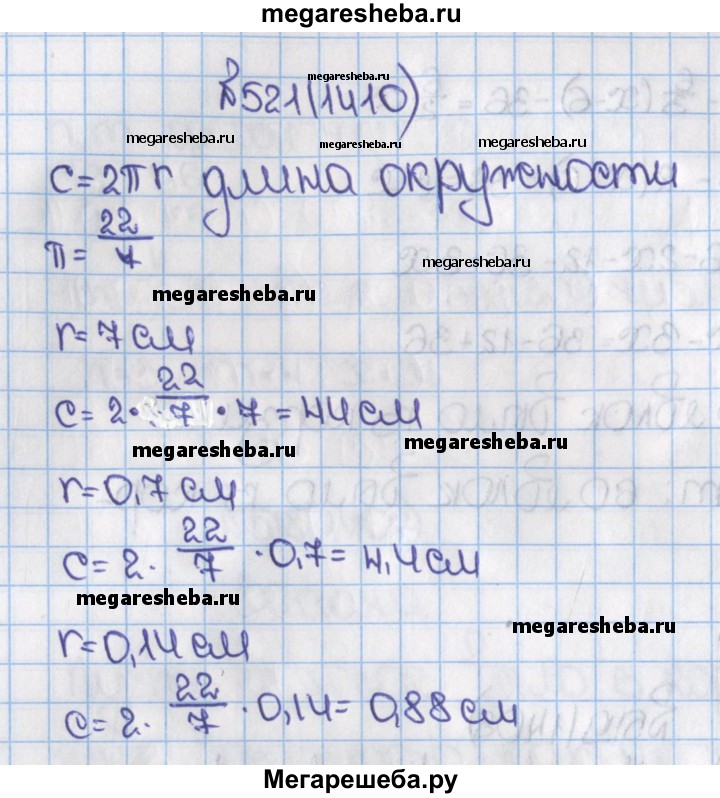 megaresheba.ru
№521(1410)
megaresheba.ru
megaresheba.ru
megaresheba.ru
C=2πr длина окружности
π= 22/7
megaresheba.ru
megaresheba.ru
r=7см
C= 2· 22/7 · 7 = 44см
megaresheba.ru
megaresheba.ru
r=0,7 см
C= 2· 22/7 · 0,7= 4,4см
megaresheba.ru
megaresheba.ru
r=0,14 см
C=2· 22/7 · 0,14= 0,88 см
Мегарешеба.ру